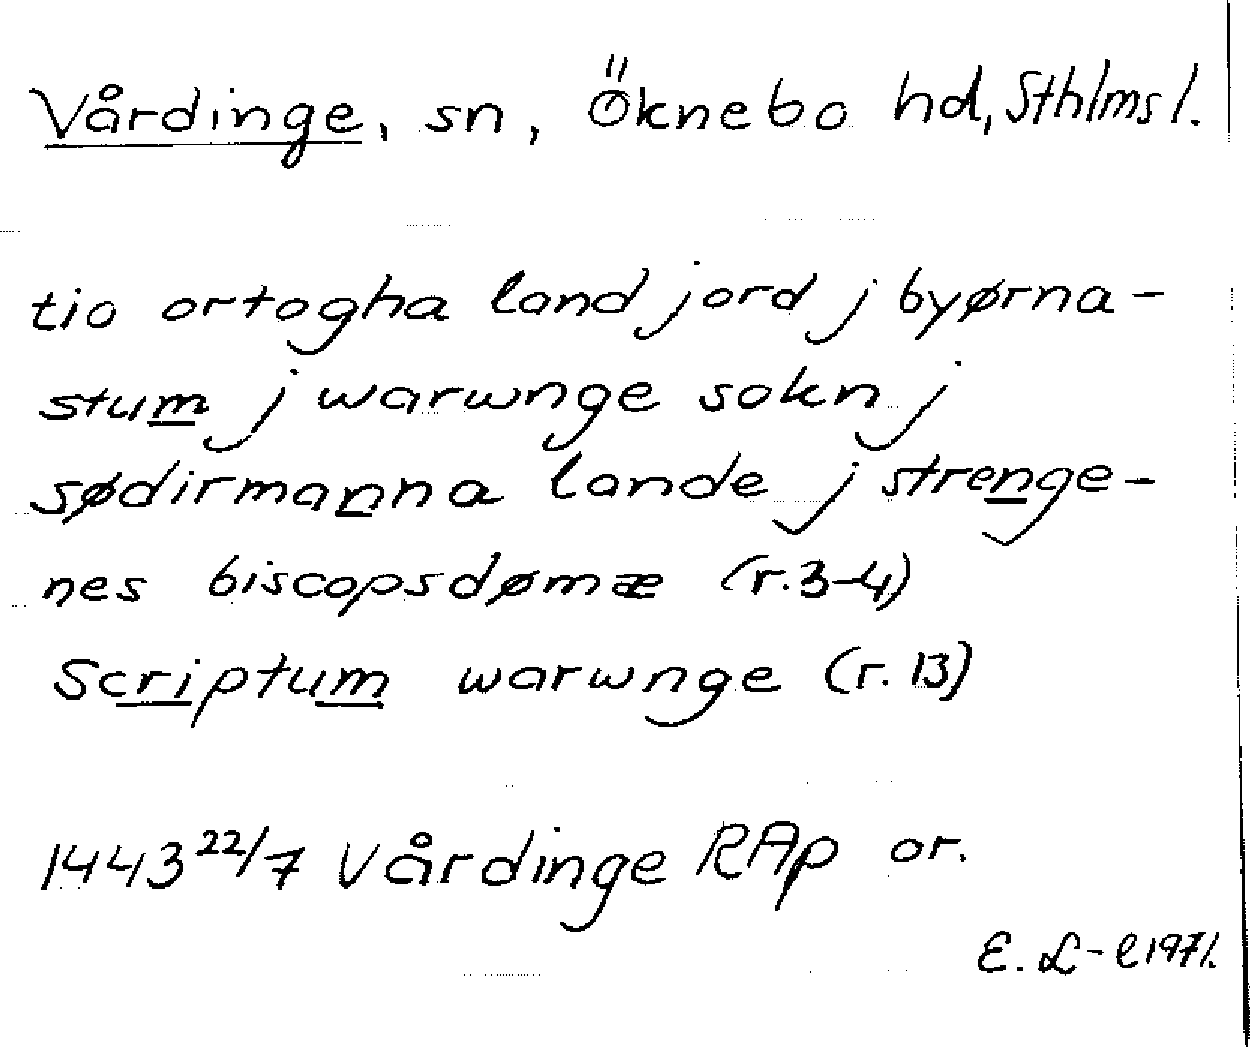 Vårdinge, sn, Öknebo hd, Sthlms l.
tio ortogha land jord j byørna-
stum j warwnge sokn j
sødirmanna lande j strenge-
nes biscopsdømæ (r.3-4)
Scriptum warwnge (r. 13)
1443 22/7 Vårdinge RAp or.
E. L-l 1971.